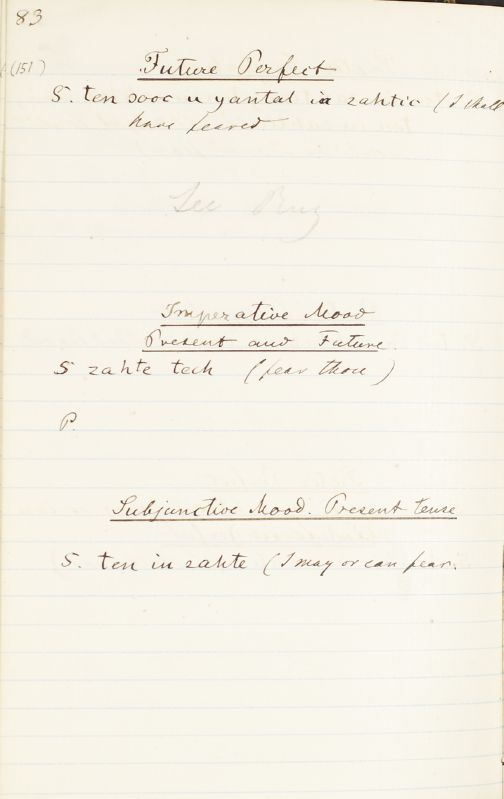 83
(151)
Future Perfect
S. ten sooc u yantal in zahtic (I shall
have feared
See
Imperative Mood
Present and Future.
S zahte tech (fear thou)
P.
Subjunctive Mood. Present tense
S. ten in zahte (I may or can fear.